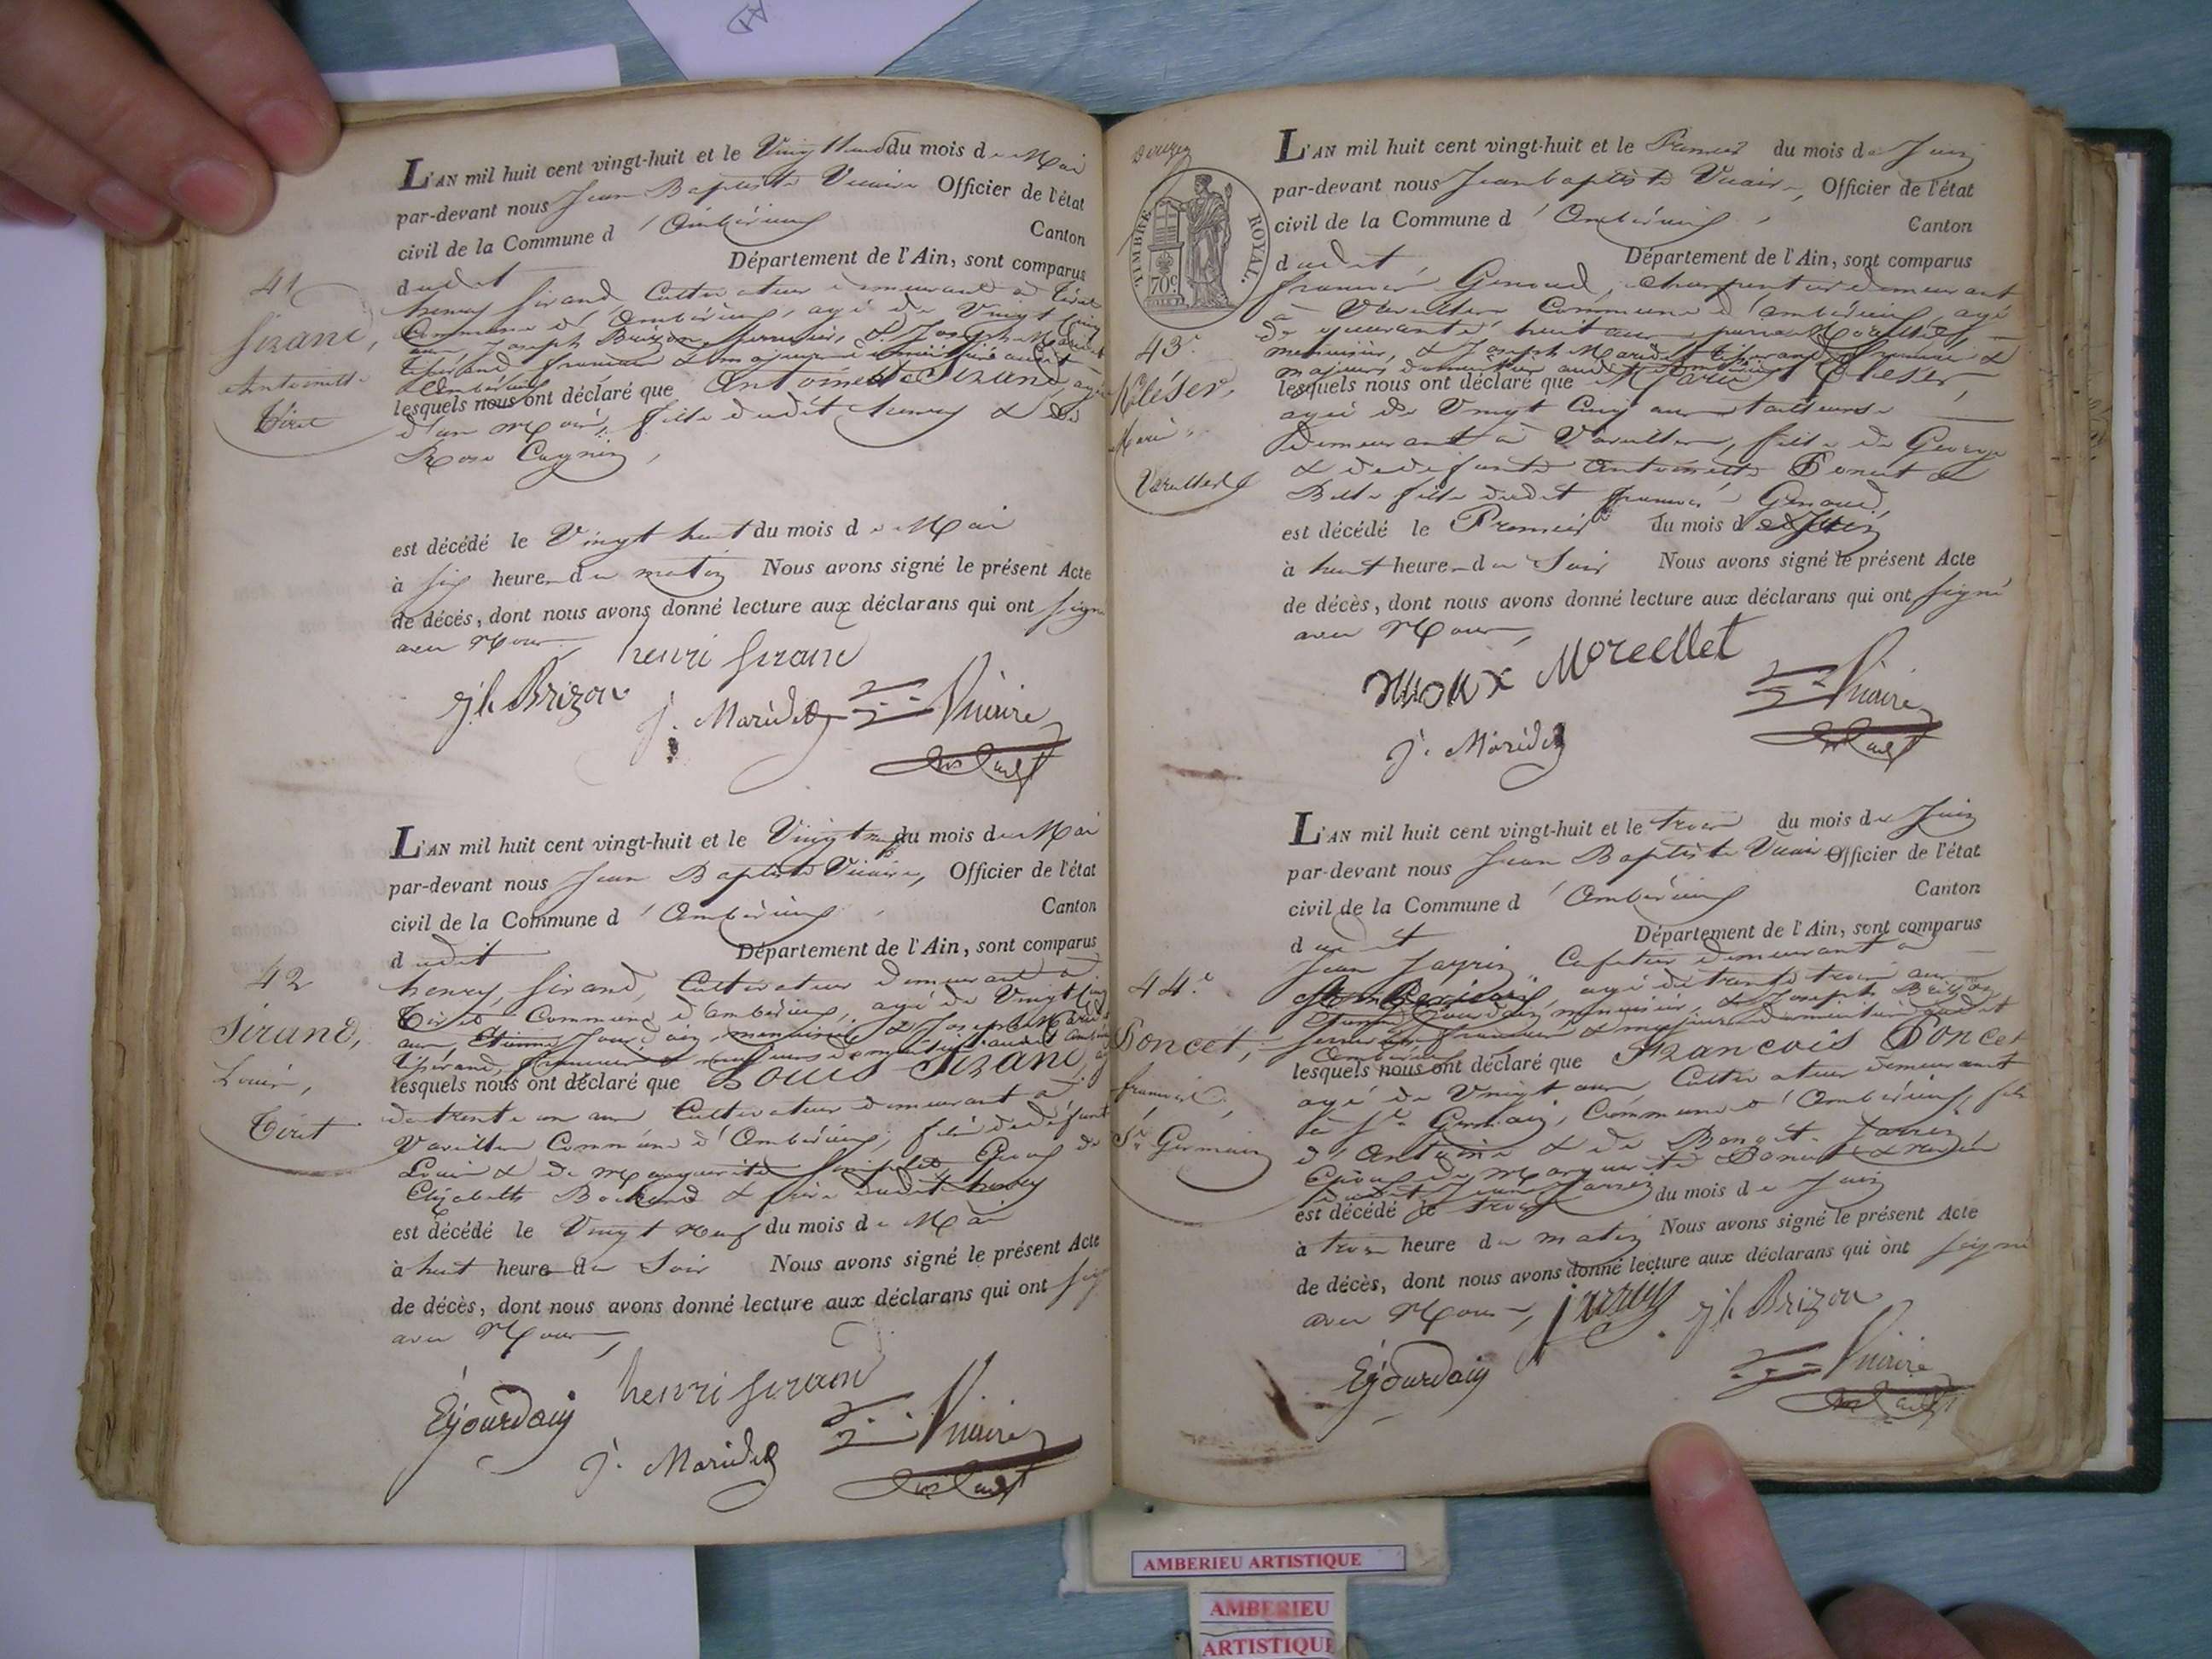 41
Sirand,
Antoinette
Tiret
L'AN mil huit cent vingt-huit et le Vingt huit du mois de Mai
par-devant nous Jean Baptiste Vicaire Officier de l'état
civil de la Commune d'Ambérieux Canton
dudit Département de l'Ain, sont comparus
henry Sirand Cultivateur demeurant à Tiret
Commune d'Ambérieux, agé de Vingt cinq
ans Joseph Brizon, serrurier, & Joseph Maridet
tisserand francais & majeurs domiciliés audit
Ambérieux
lesquels nous ont déclaré que Antoinette Sirand, agée
d'un mois, fille dudit henry & de
Rose Cagnin,
est décédé le Vingt huit du mois de Mai
à six heure du matin Nous avons signé le présent Acte
de décès, dont nous avons donné lecture aux déclarans qui ont signé
avec Nous,
henri Sirand
Jh Brizon
J. Maridet
Vicaire
42
Sirand,
Louis,
Tiret
L'AN mil huit cent vingt-huit et le Vingt neuf du mois de Mai
par-devant nous Jean Baptiste Vicaire, Officier de l'état
civil de la Commune d'Ambérieux, Canton
dudit Département de l'Ain, sont comparus
henry, Sirand, Cultivateur demeurant à
Tiret Commune d'Ambérieux, agé de Vingt cinq
ans, Etienne Jourdain, menuisier & Joseph Maridet
tisserand, francais & majeurs domiciliés audit Ambérieux
lesquels nous ont déclaré que Louis Sirand, agé
de trente un ans Cultivateur demeurant à
Vareilles Commune d'Ambérieux, fils de défunt
Louis & de Marguerite Epoux de
Elizabeth & frère dudit henry
est décédé le Vingt neuf du mois de Mai
à huit heure du Soir Nous avons signé le présent Acte
de décès, dont nous avons donné lecture aux déclarans qui ont signé
avec Nous,
henri Sirand
Ejourdain
J. Maridet
Vicaire
TIMBRE ROYAL.
70c
43e
Kléser,
Marie
Vareilles
L'AN mil huit cent vingt-huit et le Premier du mois de Juin
par-devant nous Jean baptiste Vicaire, Officier de l'état
civil de la Commune d'Ambérieux, Canton
dudit, Département de l'Ain, sont comparus
francois Genoud, charpentier demeurant
à Vareilles Commune d'ambérieux, agé
de quarante huit ans, Morellet,
menuisier, & Joseph Maridet tisserand francais &
majeurs domiciliés audit Ambérieux
lesquels nous ont déclaré que Marie Kléser,
agée de Vingt Cinq ans tailleuse
demeurant à Vareilles, fille de George
& de defunte Antoinette Poncet &
Belle fille dudit francois Genoud,
est décédé le Premier du mois de Juin
à huit heure du Soir Nous avons signé le présent Acte
de décès, dont nous avons donné lecture aux déclarans qui ont signé
avec Nous,
Morellet
J. Maridet
Vicaire
44e
Poncet,
francois,
St Germain
L'AN mil huit cent vingt-huit et le trois du mois de Juin
par-devant nous Jean Baptiste Vicaire Officier de l'état
civil de la Commune d'Ambérieux Canton
dudit Département de l'Ain, sont comparus
Jean Cafetier demeurant à
Ambérieux, agé de trente trois ans
Etienne Jourdain menuisier, & Joseph Brizon
serrurier francais & majeurs domiciliés audit
Ambérieux
lesquels nous ont déclaré que Francois Poncet
agé de Vingt ans, Cultivateur demeurant
à St Germain, Commune d'Ambérieux, fils
d'Antoine & de
Epoux de Marguerite Bonnet
dudit Jean
est décédé le trois du mois de Juin
à trois heure du matin Nous avons signé le présent Acte
de décès, dont nous avons donné lecture aux déclarans qui ont signé
avec Nous,
Jh Brizon
Ejourdain
Vicaire
AMBERIEU ARTISTIQUE
AMBERIEU
ARTISTIQUE